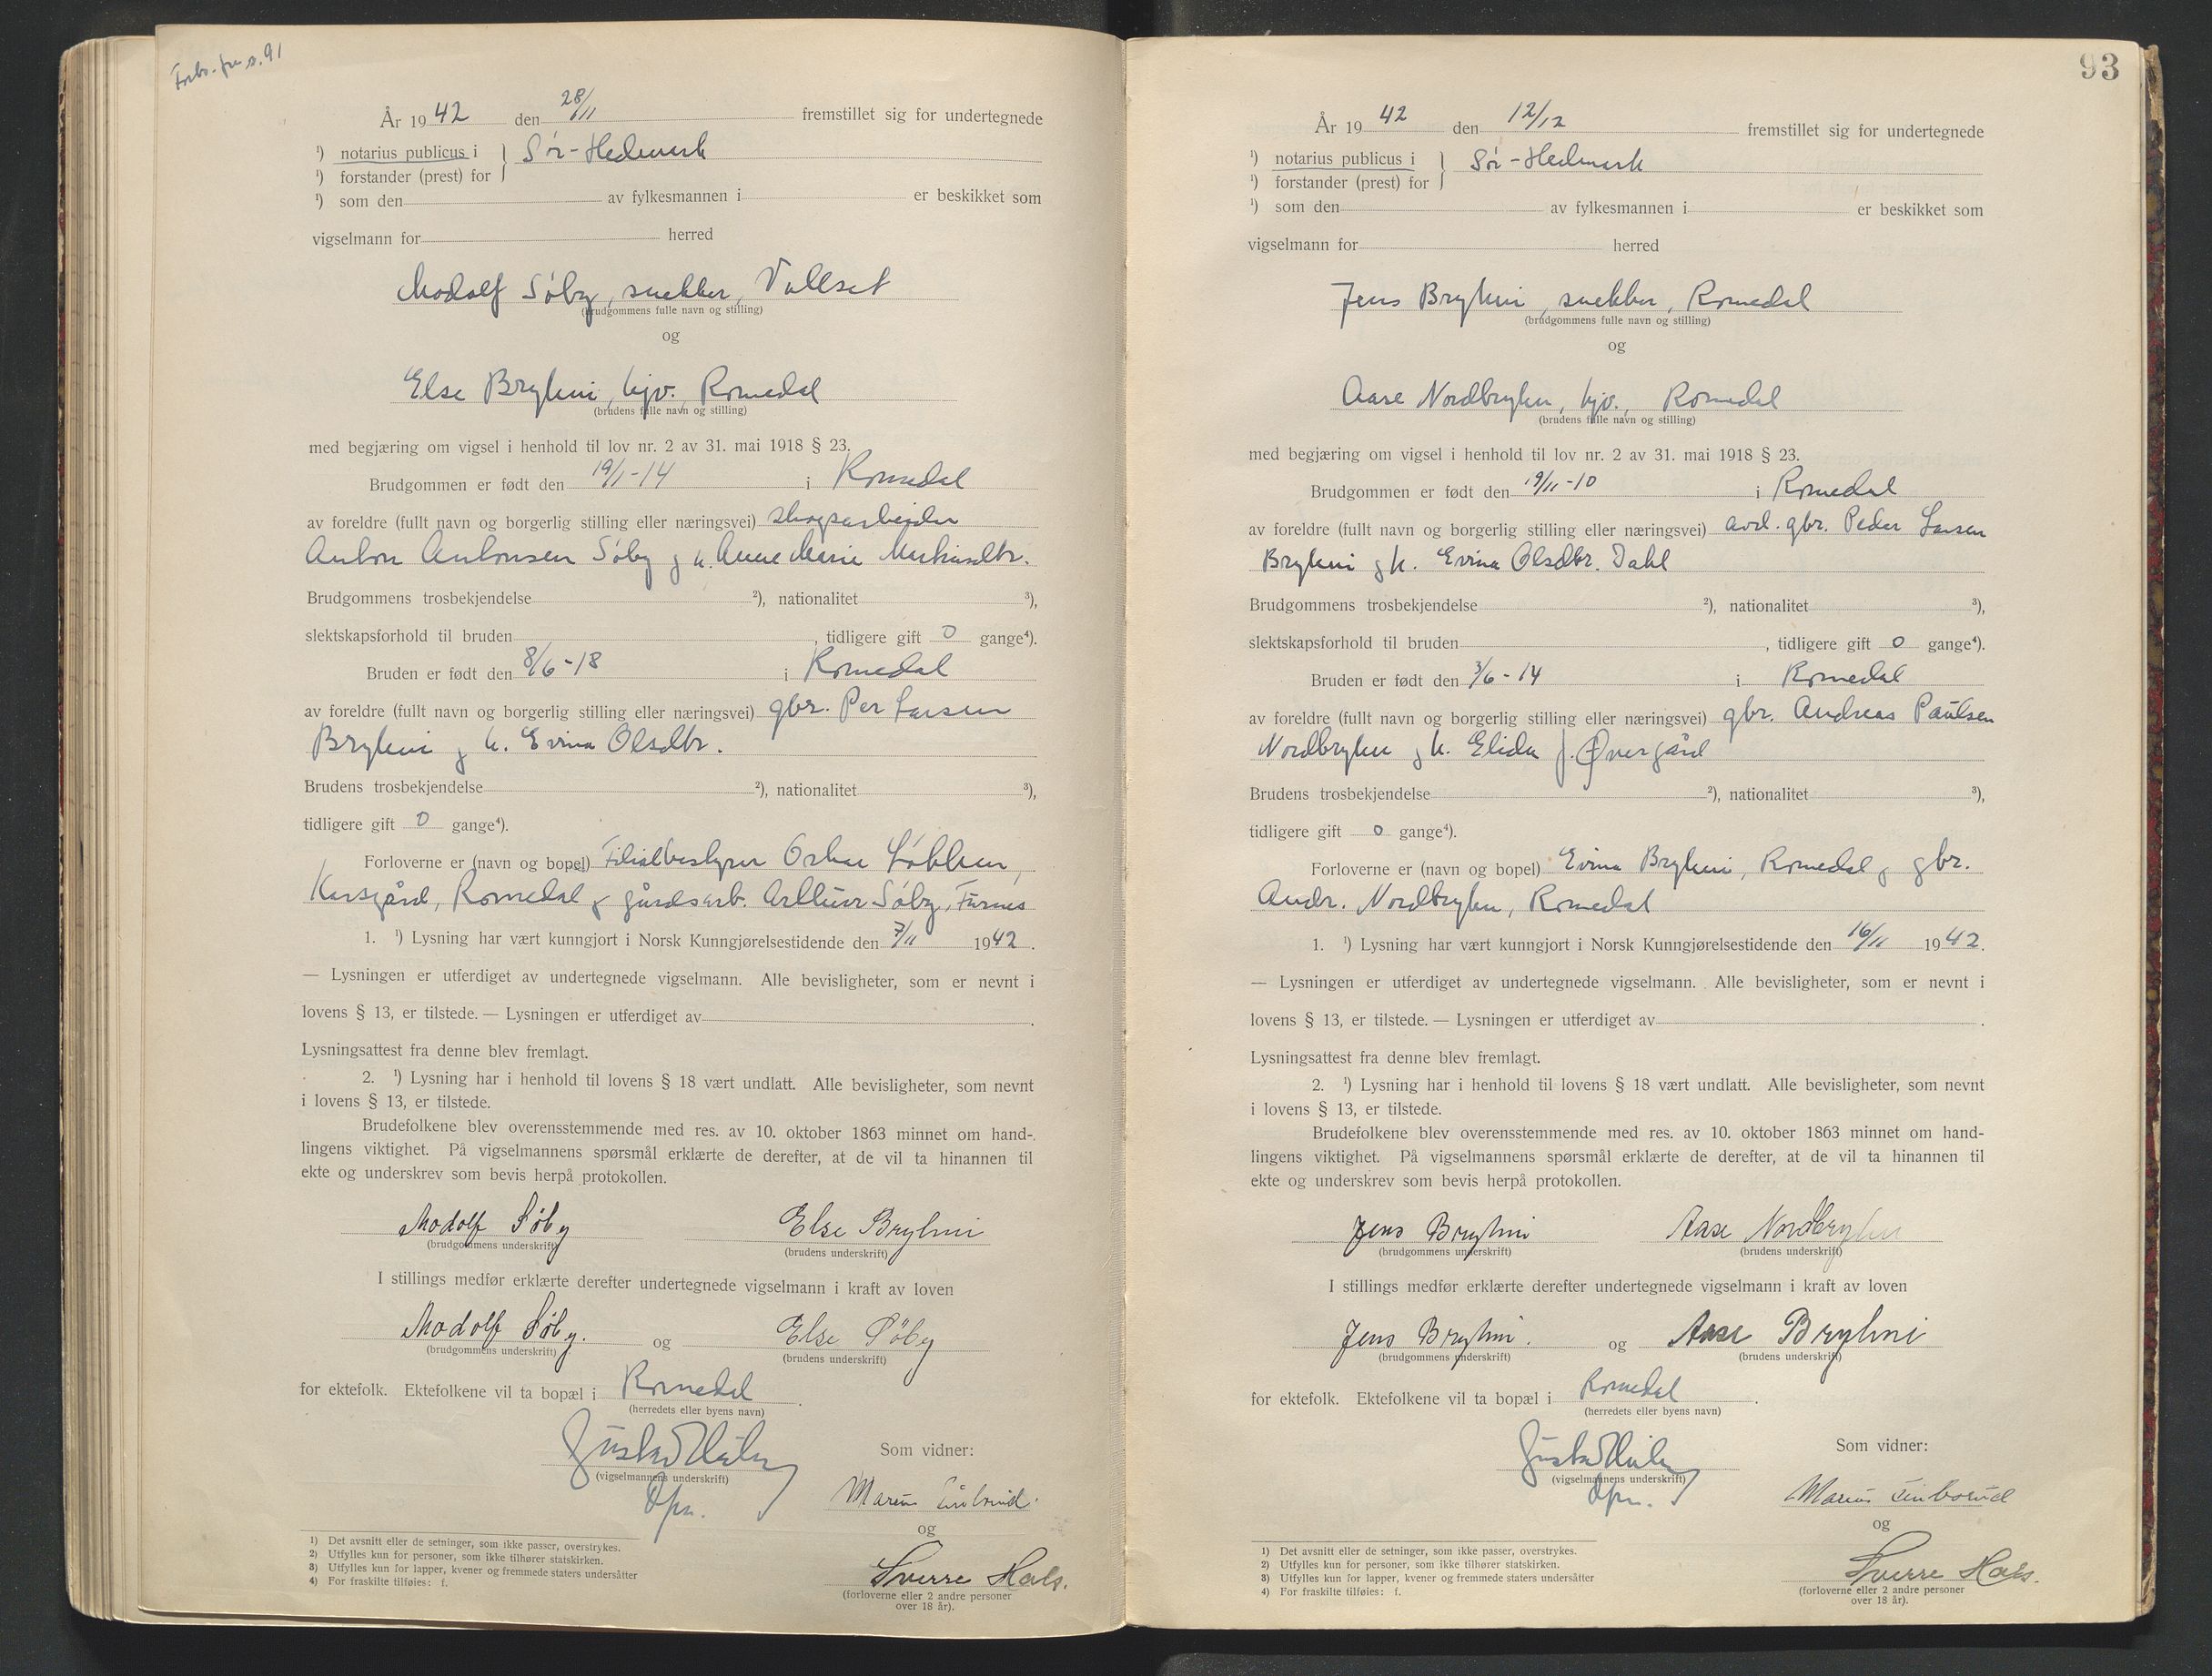 Forts. fra s. 91
År 19 42 den 28/11 fremstillet sig for undertegnede
¹) notarius publicus i } Sør-Hedmark
¹) forstander (prest) for
¹) som den av fylkesmannen i er beskikket som
vigselmann for herred
Modolf Søby, snekker, Vallset
(brudgommens fulle navn og stilling)
og
Else Bryhni, hjv. Romedal
(brudens fulle navn og stilling)
med begjæring om vigsel i henhold til lov nr. 2 av 31. mai 1918 § 23.
Brudgommen er født den 19/1-14 i Romedal
av foreldre (fullt navn og borgerlig stilling eller næringsvei) skogsarbeider
Anton Antonsen Søby og h. Anne Marie Mathiasdtr.
Brudgommens trosbekjendelse ²), nationalitet ³),
slektskapsforhold til bruden , tidligere gift 0 gange⁴).
Bruden er født den 8/6-18 i Romedal
av foreldre (fullt navn og borgerlig stilling eller næringsvei) gbr. Per Larsen
Bryhni og h. Evina Olsdtr.
Brudens trosbekjendelse ²), nationalitet ³),
tidligere gift 0 gange⁴).
Forloverne er (navn og bopel) Filialbestyrer Oskar Løkken,
Korsgård, Romedal og gårdsarb. Arthur Søby, Furnes
1. ¹) Lysning har vært kunngjort i Norsk Kunngjørelsestidende den 7/11 1942.
— Lysningen er utferdiget av undertegnede vigselmann. Alle bevisligheter, som er nevnt i
lovens § 13, er tilstede. — Lysningen er utferdiget av .
Lysningsattest fra denne blev fremlagt.
2. ¹) Lysning har i henhold til lovens § 18 vært undlatt. Alle bevisligheter, som nevnt
i lovens § 13, er tilstede.
Brudefolkene blev overensstemmende med res. av 10. oktober 1863 minnet om hand-
lingens viktighet. På vigselmannens spørsmål erklærte de derefter, at de vil ta hinannen til
ekte og underskrev som bevis herpå protokollen.
Modolf Søby Else Bryhni
(brudgommens underskrift) (brudens underskrift)
I stillings medfør erklærte derefter undertegnede vigselmann i kraft av loven
Modolf Søby. og Else Søby
(brudgommens underskrift) (brudens underskrift)
for ektefolk. Ektefolkene vil ta bopæl i Romedal .
(herredets eller byens navn)
Som vidner:
(vigselmannens underskrift)
Marius
og
Sverre Hals.
(forloverne eller 2 andre personer
over 18 år).
1) Det avsnitt eller de setninger, som ikke passer, overstrykes.
2) Utfylles kun for personer, som ikke tilhører statskirken.
3) Utfylles kun for lapper, kvener og fremmede staters undersåtter
4) For fraskilte tilføies: f.
93
År 19 42 den 12/12 fremstillet sig for undertegnede
¹) notarius publicus i } Sør-Hedmark
¹) forstander (prest) for
¹) som den av fylkesmannen i er beskikket som
vigselmann for herred
Jens Bryhni, snekker, Romedal
(brudgommens fulle navn og stilling)
og
Aase Nordbryhn, hjv., Romedal
(brudens fulle navn og stilling)
med begjæring om vigsel i henhold til lov nr. 2 av 31. mai 1918 § 23.
Brudgommen er født den 19/11-10 i Romedal
av foreldre (fullt navn og borgerlig stilling eller næringsvei) avd. gbr. Peder Larsen
Bryhni og h. Evina Olsdtr. Dahl
Brudgommens trosbekjendelse ²), nationalitet ³),
slektskapsforhold til bruden , tidligere gift 0 gange⁴).
Bruden er født den 3/6-14 i Romedal
av foreldre (fullt navn og borgerlig stilling eller næringsvei) gbr. Andreas Paulsen
Nordbryhn og h. Elida f. Øvergård
Brudens trosbekjendelse ²), nationalitet ³),
tidligere gift 0 gange⁴).
Forloverne er (navn og bopel) Evina Bryhni, Romedal og gbr.
Andr. Nordbryhn, Romedal
1. ¹) Lysning har vært kunngjort i Norsk Kunngjørelsestidende den 16/11 1942.
— Lysningen er utferdiget av undertegnede vigselmann. Alle bevisligheter, som er nevnt i
lovens § 13, er tilstede. — Lysningen er utferdiget av .
Lysningsattest fra denne blev fremlagt.
2. ¹) Lysning har i henhold til lovens § 18 vært undlatt. Alle bevisligheter, som nevnt
i lovens § 13, er tilstede.
Brudefolkene blev overensstemmende med res. av 10. oktober 1863 minnet om hand-
lingens viktighet. På vigselmannens spørsmål erklærte de derefter, at de vil ta hinannen til
ekte og underskrev som bevis herpå protokollen.
Jens Bryhni Aase Nordbryhn
(brudgommens underskrift) (brudens underskrift)
I stillings medfør erklærte derefter undertegnede vigselmann i kraft av loven
Jens Bryhni. og Aase Bryhni
(brudgommens underskrift) (brudens underskrift)
for ektefolk. Ektefolkene vil ta bopæl i Romedal .
(herredets eller byens navn)
Som vidner:
(vigselmannens underskrift)
Marius
og
Sverre Hals.
(forloverne eller 2 andre personer
over 18 år).
1) Det avsnitt eller de setninger, som ikke passer, overstrykes.
2) Utfylles kun for personer, som ikke tilhører statskirken.
3) Utfylles kun for lapper, kvener og fremmede staters undersåtter
4) For fraskilte tilføies: f.